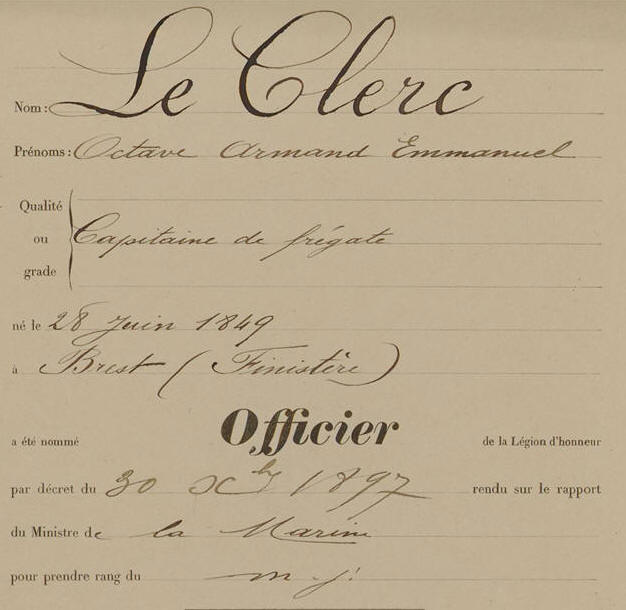 Nom: Le Clerc
Prénoms: Octave Armand Emmanuel
Qualité
ou Capitaine de frégate
grade
né le 28 Juin 1849
à Brest (Finistère)
a été nommé Officier de la Légion d'honneur
par décret du 30 Xbre 1897 rendu sur le rapport
du Ministre de la Marine
pour prendre rang du m. j.